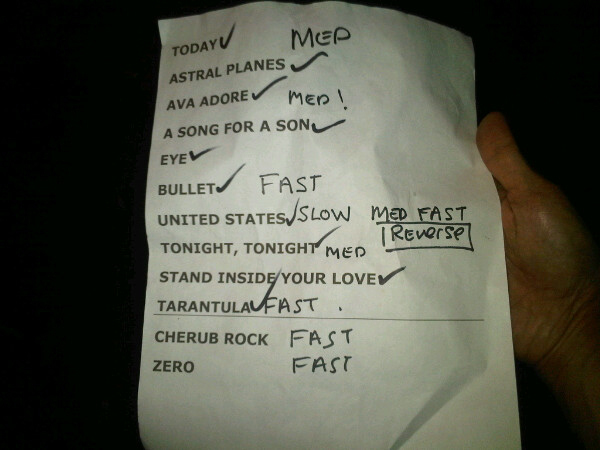 TODAY✓ MED
ASTRAL PLANES ✓
AVA ADORE✓ MED!
A SONG FOR A SON✓
EYE✓
BULLET✓ FAST
UNITED STATES✓ SLOW MED FAST
Reverse
TONIGHT, TONIGHT✓ MED
STAND INSIDE YOUR LOVE✓
TARANTULA✓ FAST .
CHERUB ROCK FAST
ZERO FAST